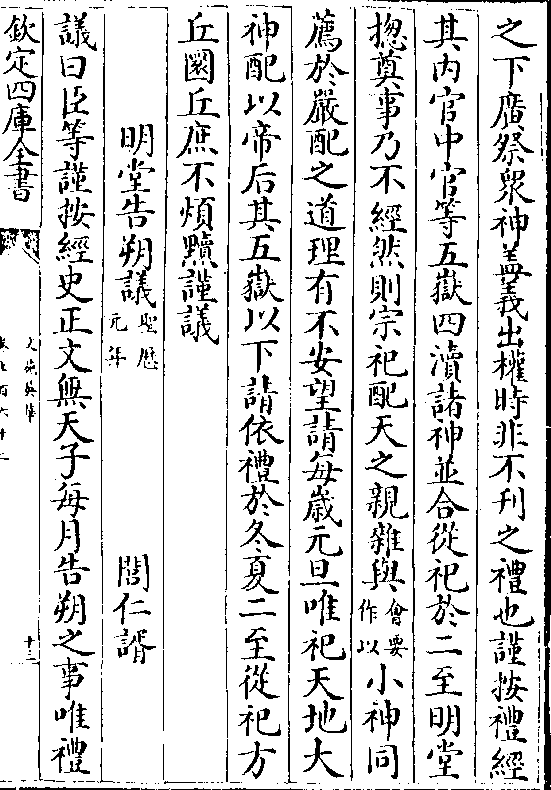 之下廣祭衆神盖義出權時非不刊之禮也謹按禮經
其内官中官等五嶽四瀆諸神並合從祀於二至明堂
揔奠事乃不經然則宗祀配天之親雜與會要作以小神同
薦於嚴配之道理有不安望請每歲元旦唯祀天地大
神配以帝后其五嶽以下請依禮於冬夏二至從祀方
丘圜丘庶不煩黷謹議
明堂告朔議聖厯元年 閻仁諝
議曰臣等謹按經史正文無天子每月告朔之事唯禮
欽定四庫全書
文苑英華
十三